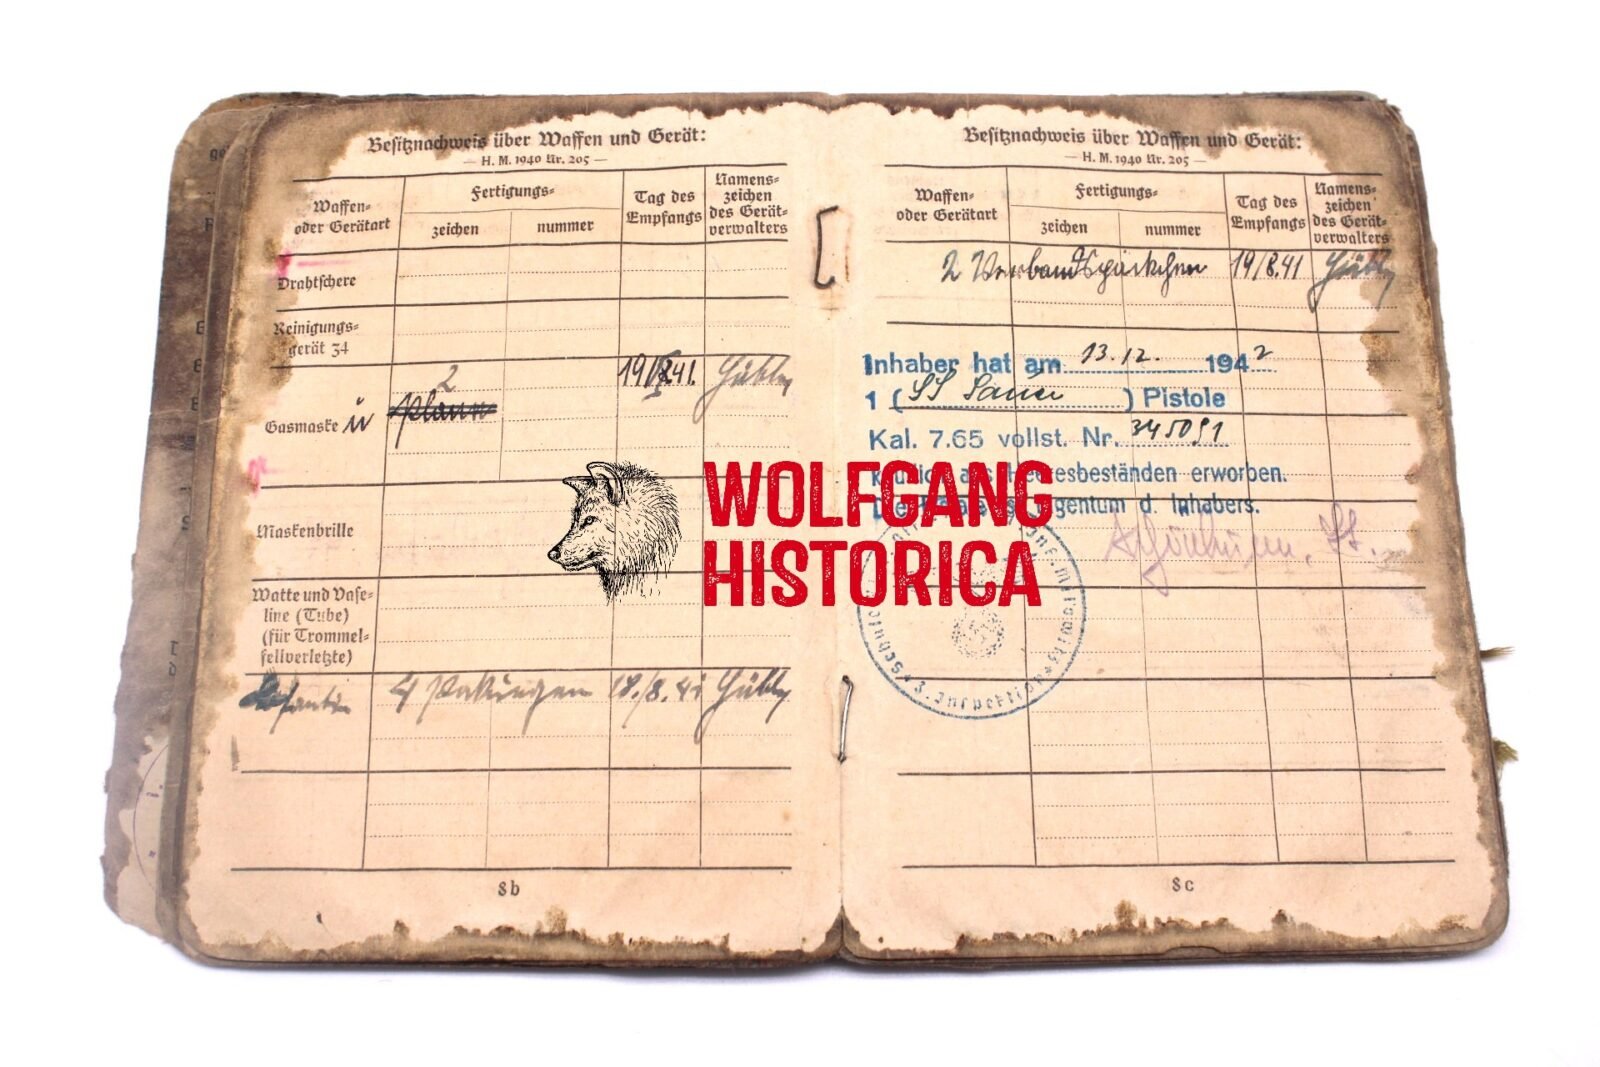 Besitznachweis über Waffen und Gerät:
— H. M. 1940 Nr. 205 —
Waffen-
oder Gerätart
Fertigungs-
zeichen
nummer
Tag des
Empfangs
Namens-
zeichen
des Gerät-
verwalters
Drahtschere
Reinigungs-
gerät 34
2
Gasmaske
Maskenbrille
Watte und Vase-
line (Tube)
(für Trommel-
fellverletzte)
4 Packungen 18./8.41
8b
Besitznachweis über Waffen und Gerät:
— H. M. 1940 Nr. 205 —
Waffen-
oder Gerätart
Fertigungs-
zeichen
nummer
Tag des
Empfangs
Namens-
zeichen
des Gerät-
verwalters
2 Verbandspäckchen 19/8.41
Inhaber hat am 13.12. 1942
1 ( ) Pistole
Kal. 7.65 vollst. Nr. 345091
Heeresbeständen erworben.
Eigentum d. Inhabers.
3. Inspektion
8c
WOLFGANG
HISTORICA